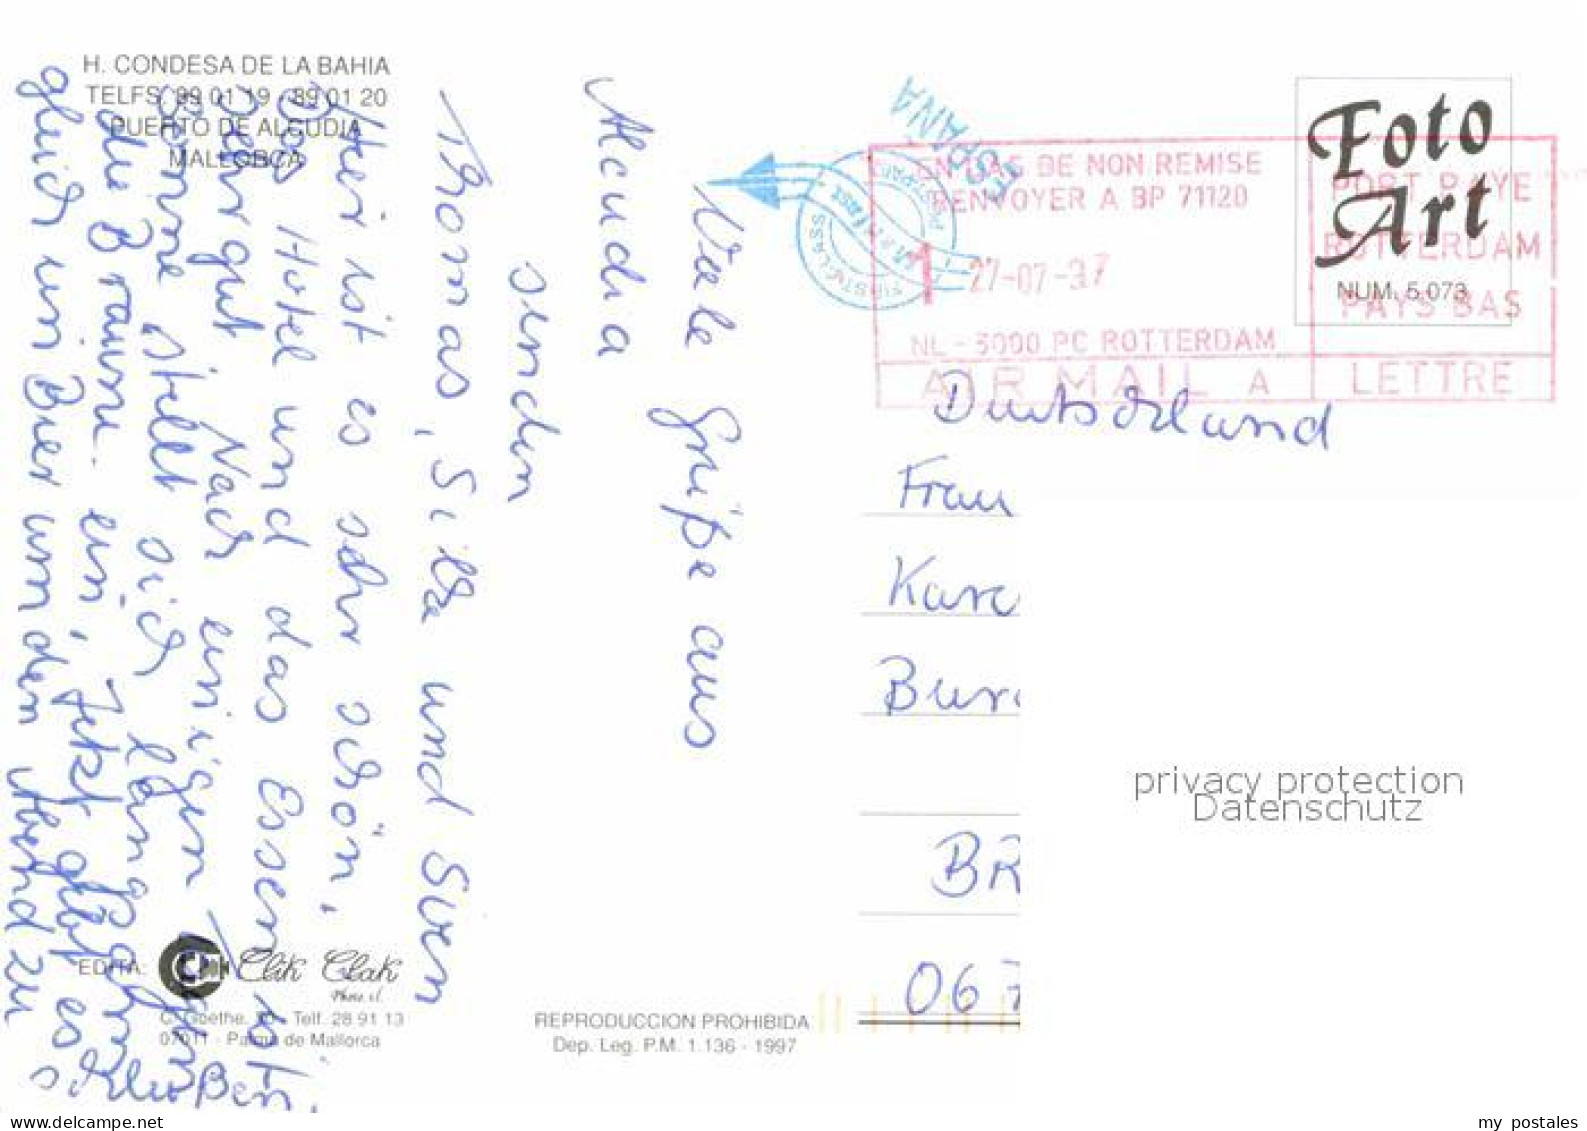 H. CONDESA DE LA BAHIA
TELFS. 89 01 19 - 89 01 20
PUERTO DE ALCUDIA
MALLORCA
Viele Grüße aus
Alcudia
senden
Thomas, Silke und Sven
Hier ist es sehr schön,
Das Hotel und das Essen ist
sehr gut. Nach einigen
Sonne stellt sich lang
die Bräune ein, Jetzt gibt es
gleich ein Bier um den Abend zu
EDITA:
Clik Clak
Photo s.l.
C/ Goethe, - Telf. 28 91 13
07011 - Palma de Mallorca
REPRODUCCION PROHIBIDA
Dep. Leg. P.M. 1.136 - 1997
ESPAÑA
FIRST CLASS
EN CAS DE NON REMISE
RENVOYER A BP 71120
27-07-97
NL - 3000 PC ROTTERDAM
AIR MAIL A
PORT PAYE
ROTTERDAM
PAYS BAS
LETTRE
Foto
Art
NUM. 5.073
Deutschland
Frau
Karo
Bur
BR
067
privacy protection
Datenschutz
www.delcampe.net
my postales